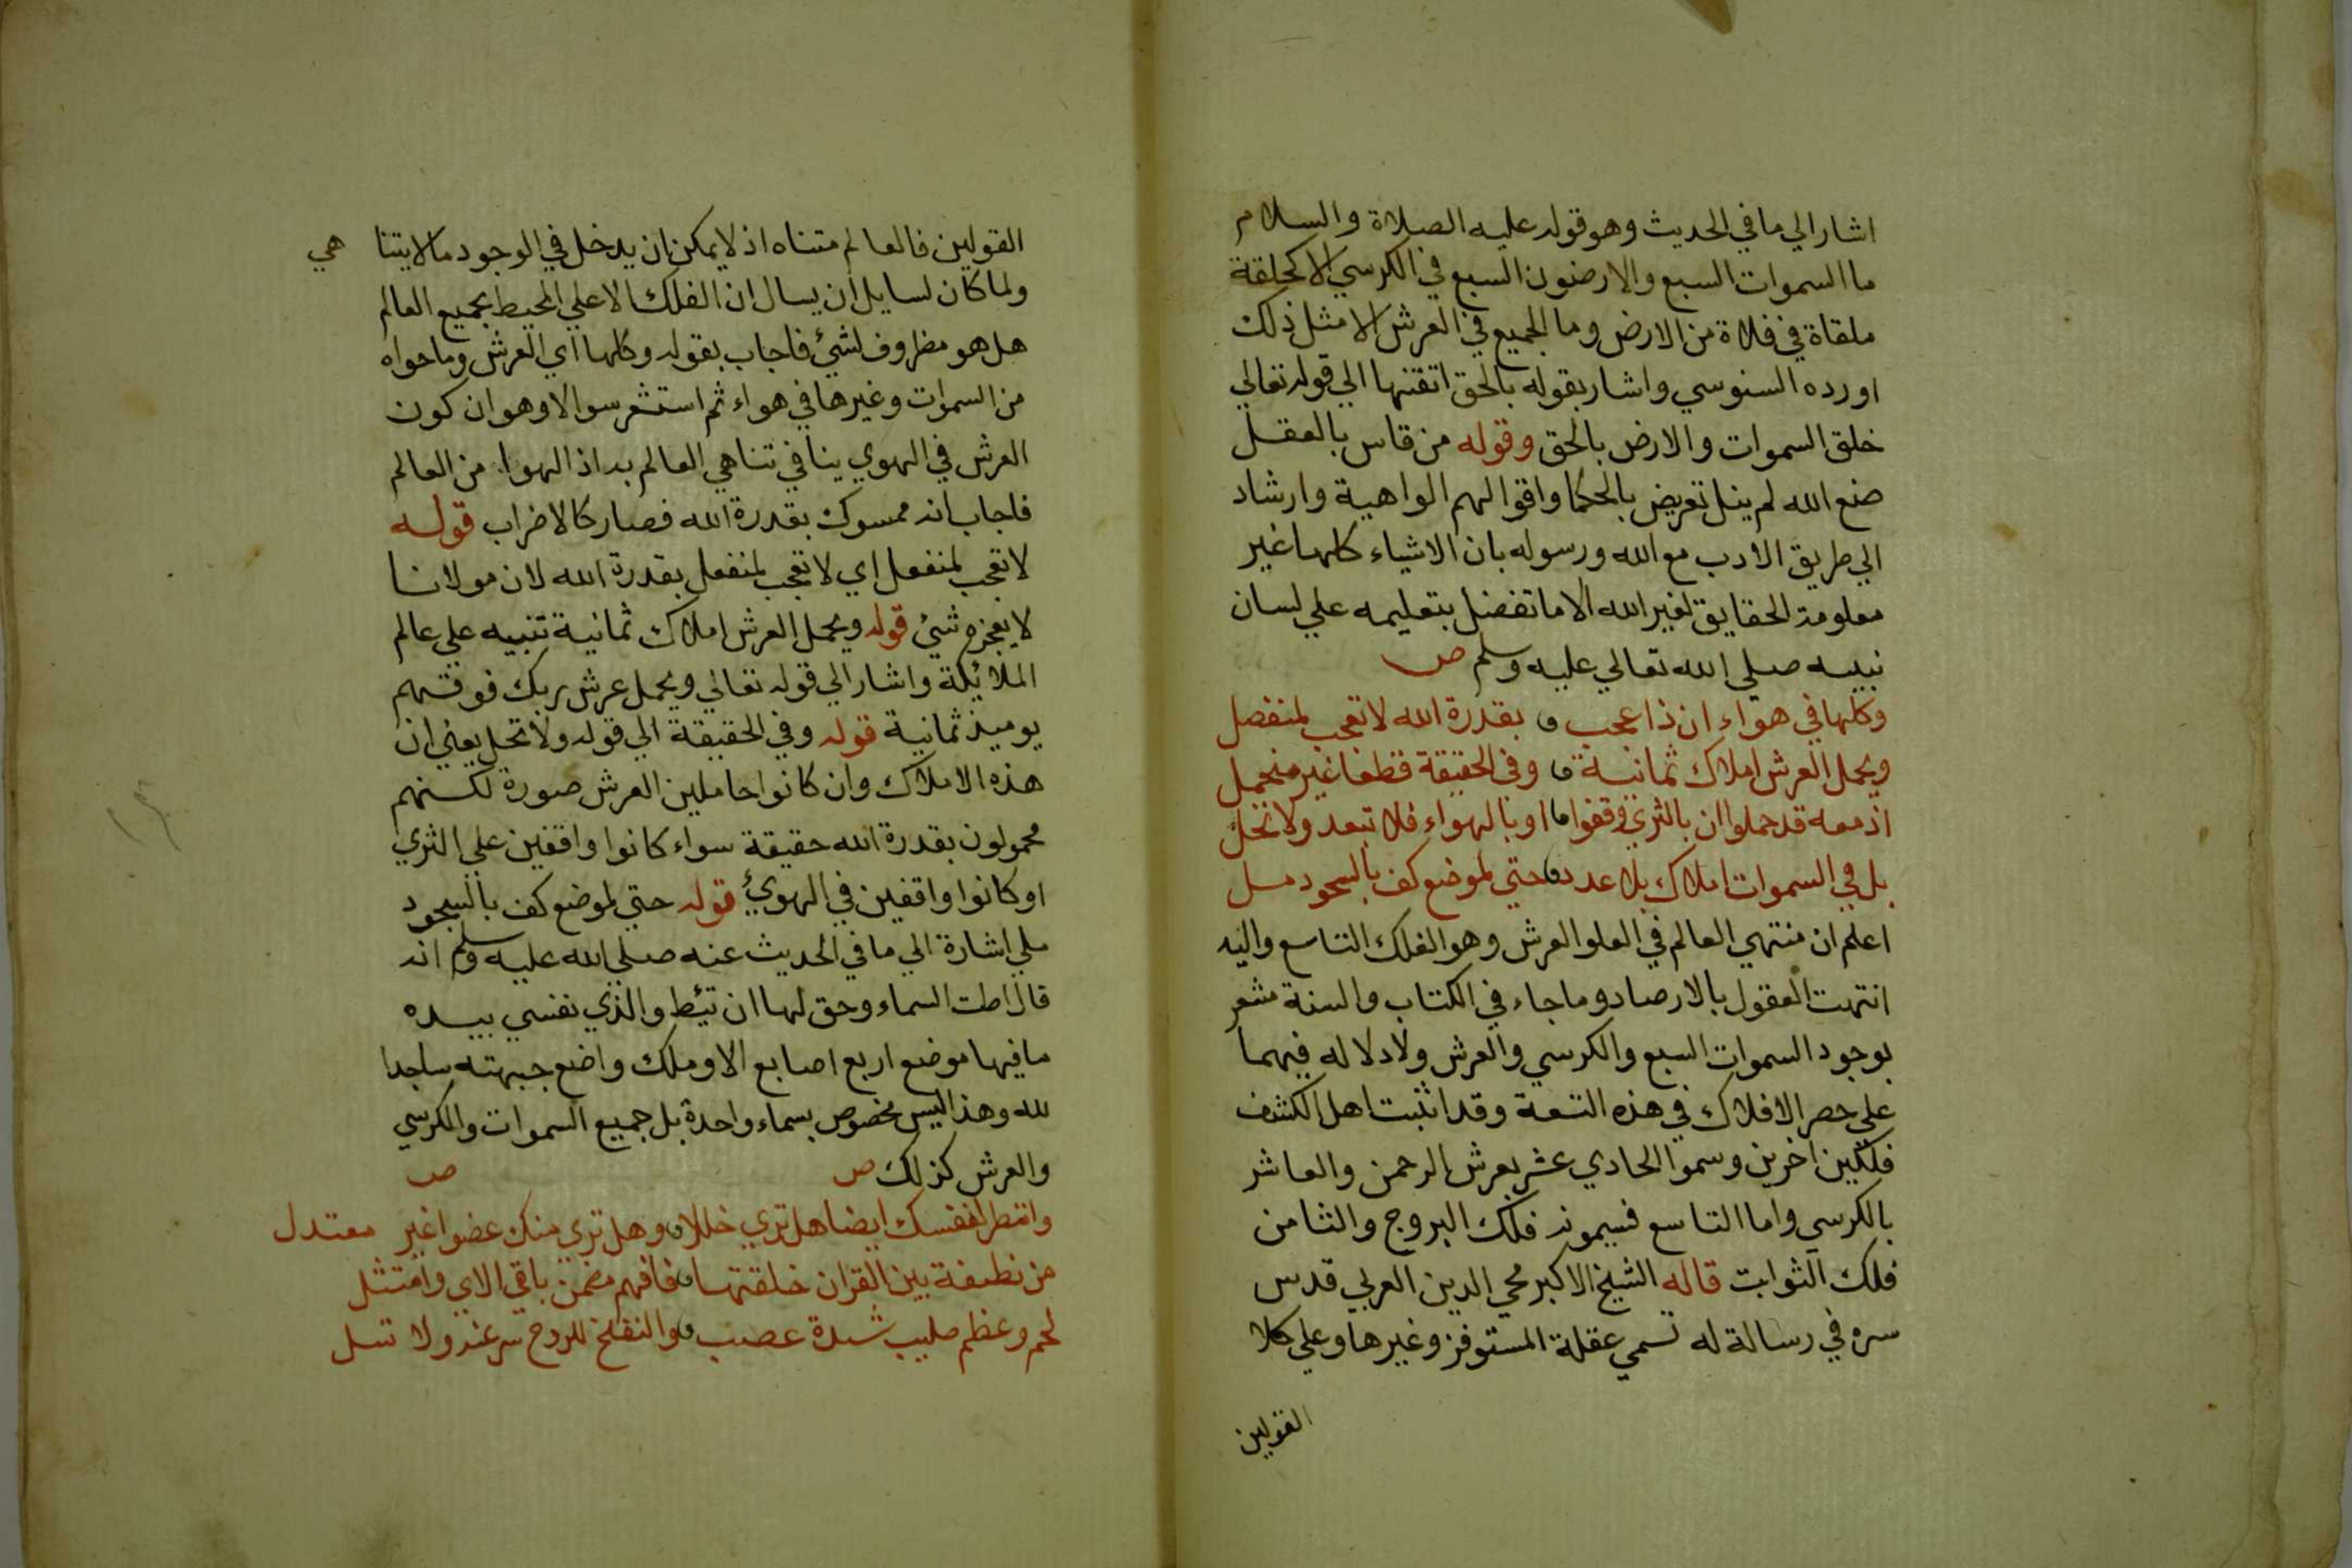 اشار الي ما في الحديث وهو قوله عليه الصلاة والسلام
ما السموات السبع والارضون السبع في الكرسي الا كحلقة
ملقاة في فلاة من الارض وما الجميع في العرش الا مثل ذلك
اورده السنوسي واشار بقوله بالحق اتقنها الي قوله تعالي
خلق السموات والارض بالحق وقوله من قاس بالعقل
صنع الله لم ينل تعريض بالحكما واقوالهم الواهية وارشاد
الي طريق الادب مع الله ورسوله بان الاشياء كلها غير
معلومة الحقايق لغير الله الا ما تفضل بتعليمه علي لسان
نبيه صلي الله تعالي عليه وسلم ص
وكلها في هواء ان ذا عجب بقدرة الله لا تعجب لمنفصل
ويحمل العرش املاك ثمانية وفي الحقيقة قطعا غير منحمل
اذ معه قد حملوا ان بالثري وقفوا او بالهواء فلا تبعد ولا تحل
بل في السموات املاك بلا عدد حتي لموضع كف بالسجود مل
اعلم ان منتهي العالم في العلو العرش وهو الفلك التاسع واليه
انتهت العقول بالارصاد وما جاء في الكتاب والسنة مشعر
بوجود السموات السبع والكرسي والعرش ولا دلاله فيهما
علي حصر الافلاك في هذه التسعة وقد اثبت اهل الكشف
فلكين اخرين وسموا الحادي عشر بعرش الرحمن والعاشر
بالكرسي واما التاسع فسيمونه فلك البروج والثامن
فلك الثوابت قاله الشيخ الاكبر محي الدين العربي قدس
سره في رسالة له تسمي عقلة المستوفز وغيرها وعلي كلا
القولين
القولين فالعالم متناه اذ لا يمكن ان يدخل في الوجود ما لا يتنا هي
ولما كان لسايل ان يسال ان الفلك الاعلي المحيط بجميع العالم
هل هو مظروف لشيء فاجاب بقوله وكلها اي العرش وما حواه
من السموات وغيرها في هواء ثم استشعر سوالا وهو ان كون
العرش في الهوي ينافي تناهي العالم به اذ الهوا من العالم
فاجاب انه ممسوك بقدرة الله فصار كالاضراب قوله
لا تعجب لمنفعل اي لا تعجب لمنفعل بقدرة الله لان مولانا
لا يعجزه شيء قوله ويحمل العرش املاك ثمانية تنبيه علي عالم
الملائكة واشار الي قوله تعالي ويحمل عرش ربك فوقهم
يوميذ ثمانية قوله وفي الحقيقة الي قوله ولا تحل يعني ان
هذه الاملاك وان كانوا حاملين العرش صورة لكنهم
محمولون بقدرة الله حقيقة سواء كانوا واقفين علي الثري
او كانوا واقفين في الهوي قوله حتي لموضع كف بالسجود
ملي اشارة الي ما في الحديث عنه صلي الله عليه وسلم انه
قال اطت السماء وحق لها ان تئط والذي نفسي بيده
ما فيها موضع اربع اصابع الا وملك واضع جبهته ساجدا
لله وهذا ليس مخصوص بسماء واحدة بل جميع السموات والكرسي
والعرش كذلك ص ص
وانظر لنفسك ايضا هل تري خللا وهل تري منك عضوا غير معتدل
من نطفة بين القران خلقتها فافهم مضمن باقي الاي وامتثل
لحم وعظم صليب شدة عصب والنفخ للروح سر عنه ولا تسل